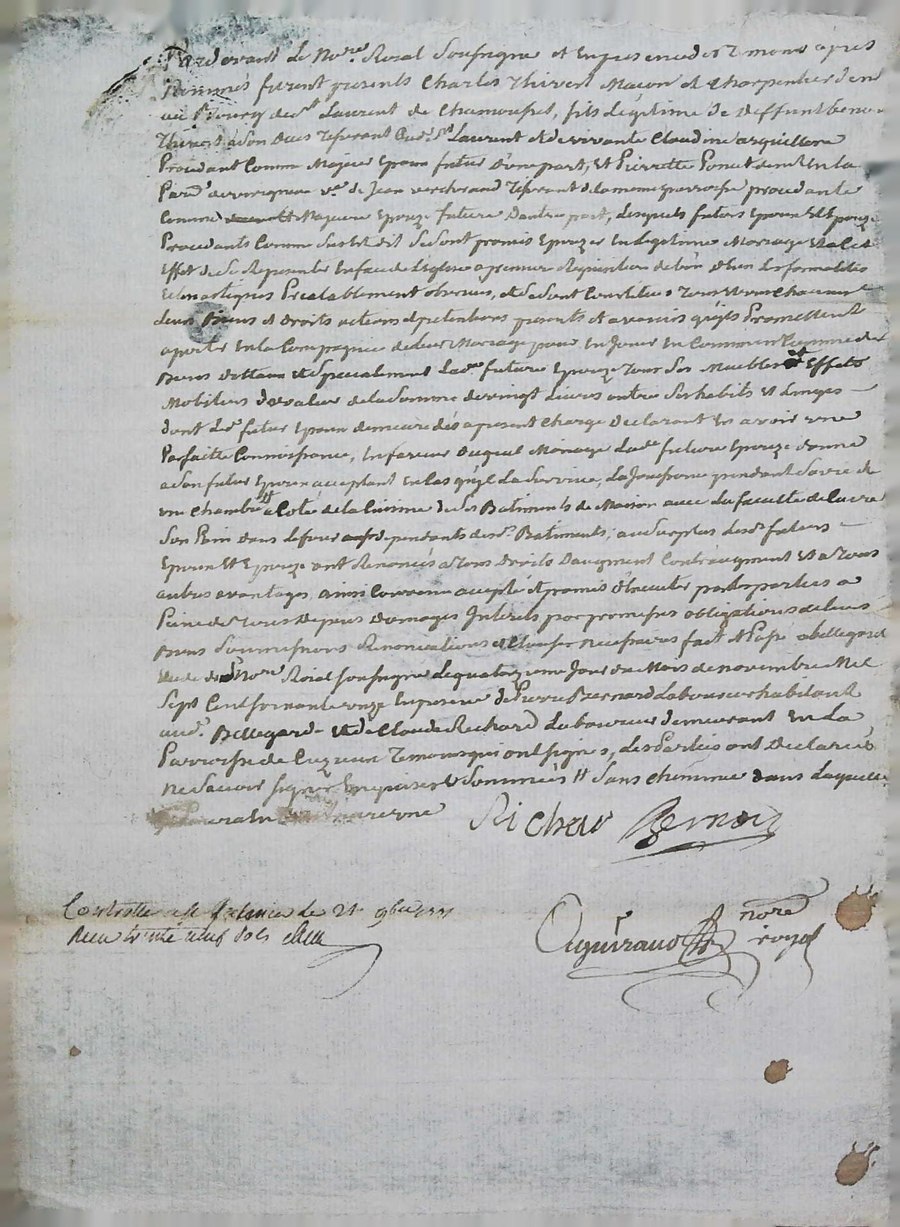 Pardevant le No.re Roial Soussigne et en presence des Temoins apres
Nommés furent presents Charles Thivent Maçon et Charpentier dem.t
au Bourg de S.t Laurent de Chamousset, fils Legitime de Deffunt
Thivent a son Deces residant aud. S.t Laurent et de vivante Claudine
Procedant Comme Majeur Epoux futur D'une part, Et Pierrette Ponet demt En la
Par.e de v.ve de Jean residant de la meme parroisse procedante
Comme Majeure Epouze future Dautre part, lesquels futurs Epoux Et Epouze
Procedants Comme Sus est dit Se Sont promis Epouzer En Legitime Mariage Et a Cet
Effet de Se Representer En face de L'Eglise a premiere Requisition de l'un d'Eux Les formalités
preablablement observees, et se sont Constitues Tous leurs Chacun
leurs Biens et Droits actions et pretentions presents et avenirs qu'ils Promettent
aporter En la Compagnie de leur Mariage pour En Jouir En Commun Comme de
Biens Dottaux et Specialement Lad.e future Epouze Tous Ses Meubles et Effets
Mobiliers de valeur de la Somme de vingt Livres outre Ses habits Et Linges
dont Le futur Epoux demeure dés a present Charge Declarant En avoir une
Parfaitte Connoissance, En faveur Duquel Mariage Lad.e future Epouze donne
a Son futur Epoux acceptant En Cas qu'il La Survive, La Jouissance pendant Sa vie de
une Chambre a Coté de la Cuisine de Ses Batiments de Maison avec La faculté de Cuire
Son Pain dans Le four dependants desd. Batiments; au Surplus Lesd. futurs
Epoux Et Epouze ont Renoncés a Tous Droits D'augment Contraugment Et a Tous
autres avantages, ainsi Convenu accepté Et promis Executer par les parties a
Peine de Tous Depens Domages Interets par promesses obligations de leurs
Biens Soumissions Renonciations et Clauses necessaires fait Et Passé a Bellegarde
Etude du No.re Roial soussigne Le quatorzieme Jour du Mois de novembre Mil
Sept Cent soixante onze En presence de Pierre Bernard Laboureur habitant
aud. Bellegarde Et de Claude Richard Laboureur demeurant En La
Parroisse de Cuzieu Temoins qui ont signés, Les Parties ont Declarées
Ne Savoir signer Enquises et Sommées // Sans cheminee dans laquelle
Richar Bernar
Controllé a le 21 9bre 1771
Reçu trente neuf sols
nore
royal